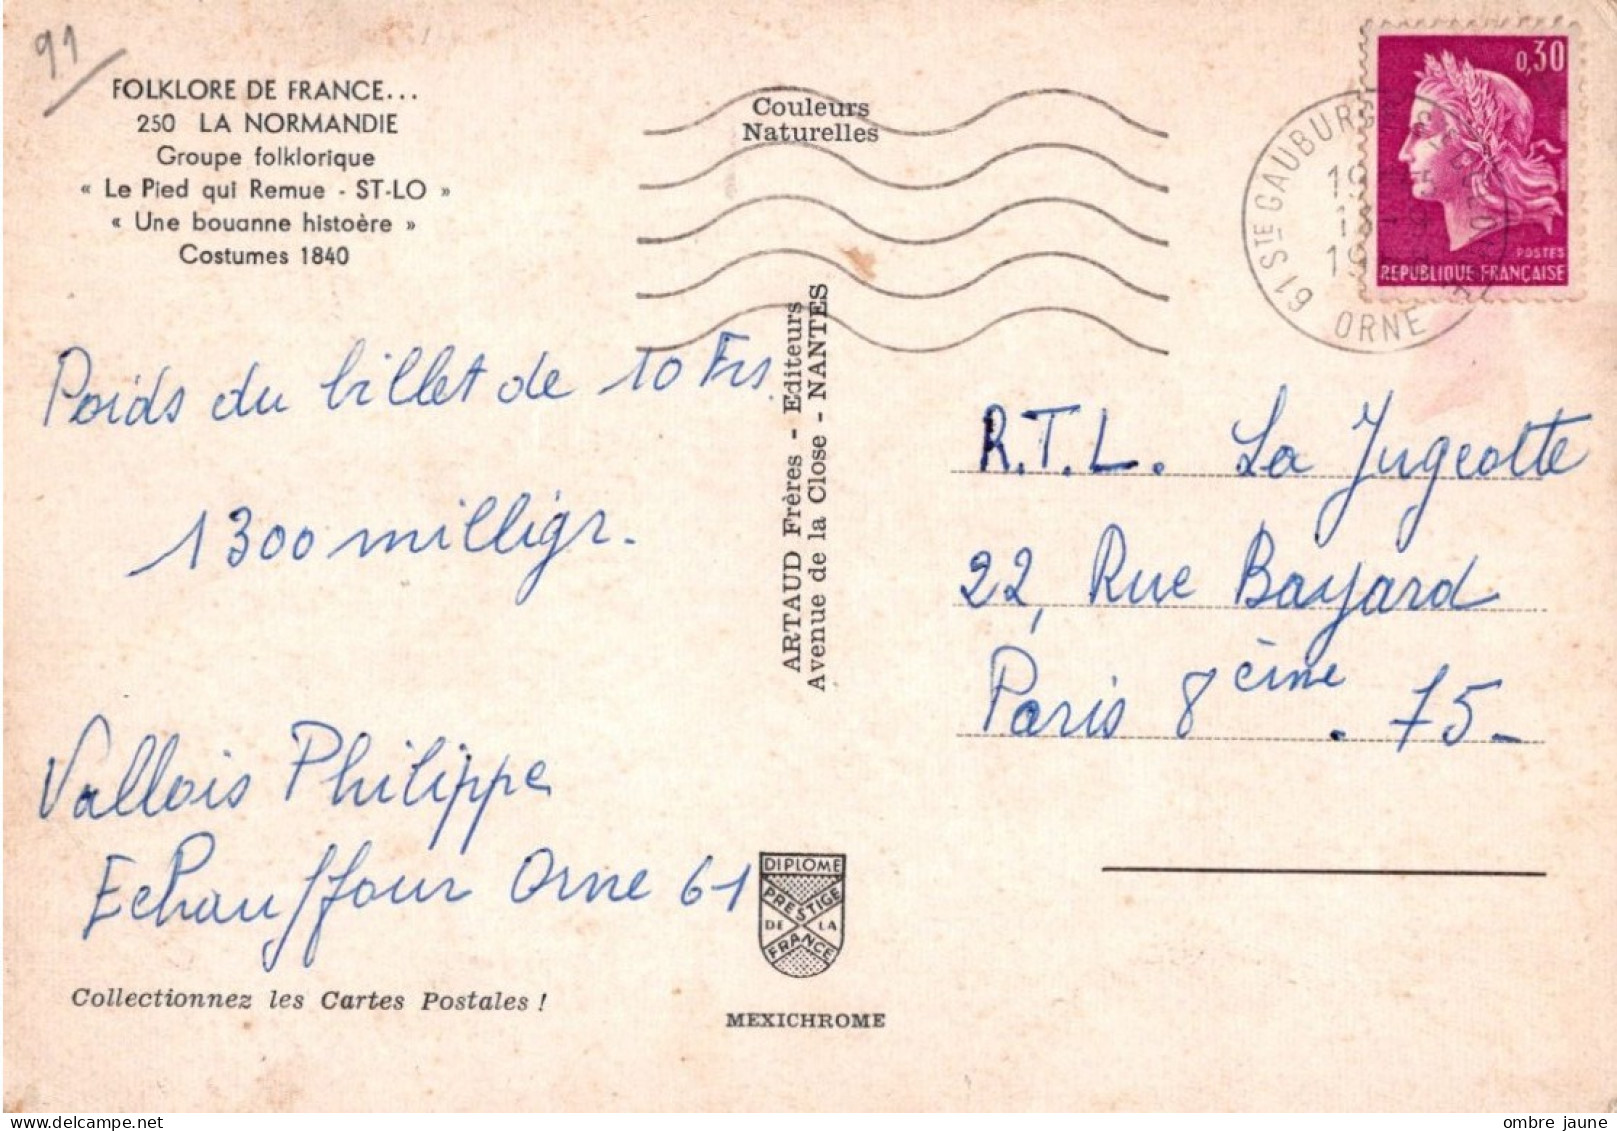 91
FOLKLORE DE FRANCE...
250 LA NORMANDIE
Groupe folklorique
« Le Pied qui Remue - ST-LO »
« Une bouanne histoère »
Costumes 1840
Couleurs
Naturelles
0,30
POSTES
REPUBLIQUE FRANÇAISE
61 STE GAUBURGE
ORNE
Poids du billet de 10 Frs.
1300 milligr.
Vallois Philippe
Echauffour Orne 61
Collectionnez les Cartes Postales !
ARTAUD Frères - Editeurs
Avenue de la Close - NANTES
DIPLOME
PRESTIGE
DE LA
FRANCE
MEXICHROME
R.T.L. La Jugeotte
22, Rue Bayard
Paris 8 ème . 75-
ombre jaune